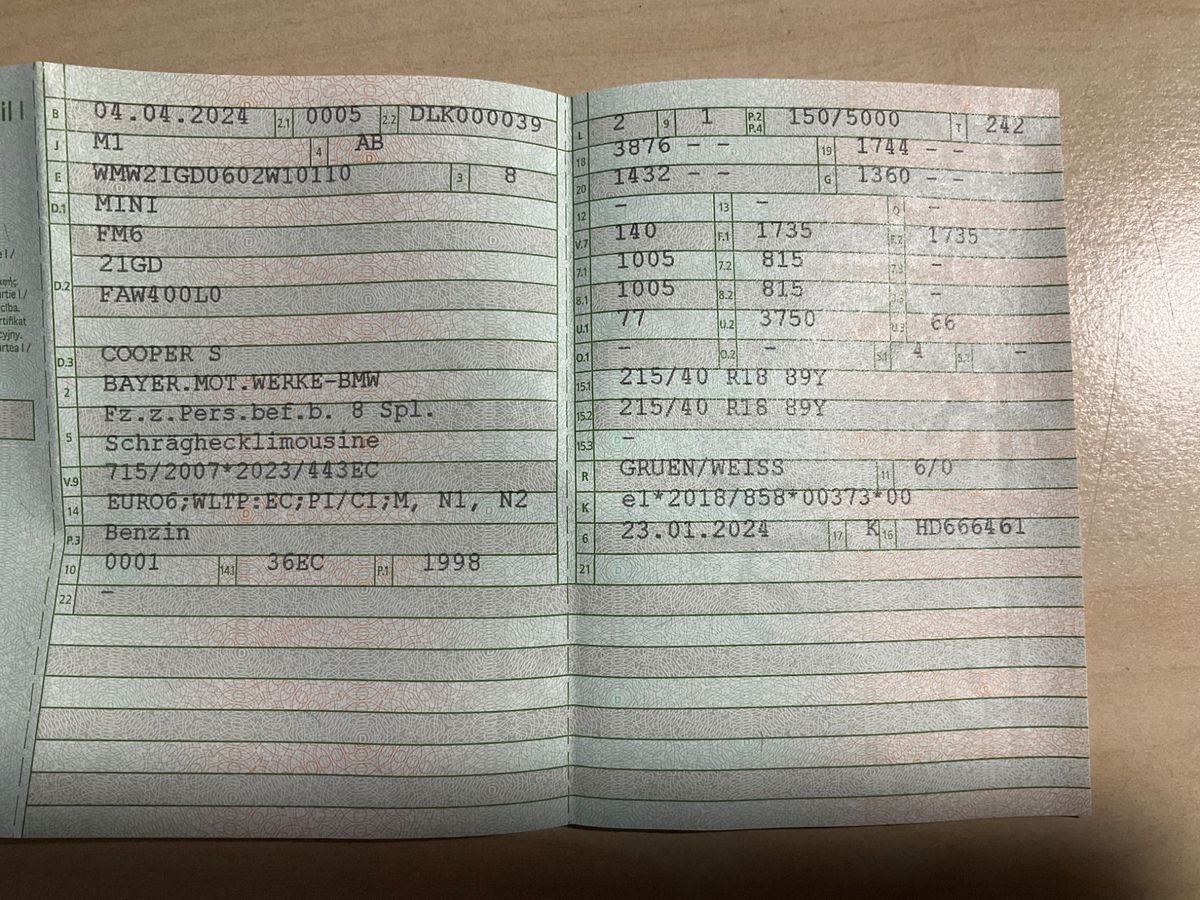 il I
B 04.04.2024 2.1 0005 2.2 DLK000039
J M1 4 AB
E WMW21GD0602W10110 3 8
D.1 MINI
D.2 FM6
21GD
FAW400L0
D.3 COOPER S
2 BAYER.MOT.WERKE-BMW
5 Fz.z.Pers.bef.b. 8 Spl.
Schräghecklimousine
V.9 715/2007*2023/443EC
14 EURO6;WLTP:EC;PI/CI;M, N1, N2
P.3 Benzin
10 0001 14.1 36EC P.1 1998
22 –
L 2 9 1 P.2 P.4 150/5000 T 242
18 3876 – – 19 1744 – –
20 1432 – – G 1360 – –
12 – 13 – Q –
V.7 140 F.1 1735 F.2 1735
7.1 1005 7.2 815 7.3 –
8.1 1005 8.2 815 8.3 –
U.1 77 U.2 3750 U.3 66
O.1 – O.2 – S.1 4 S.2 –
15.1 215/40 R18 89Y
15.2 215/40 R18 89Y
15.3 –
R GRUEN/WEISS 11 6/0
K e1*2018/858*00373*00
6 23.01.2024 17 K 16 HD666461
21